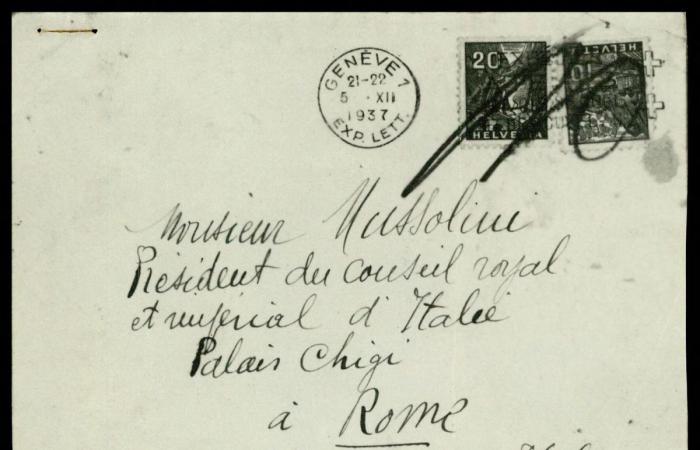 GENÈVE 1
21-22
5 · XII
1937
EXP. LETT.
20
HELVETIA
HELVETIA
10
Monsieur Mussolini
Président du conseil royal
et impérial d'Italie
Palais Chigi
à Rome